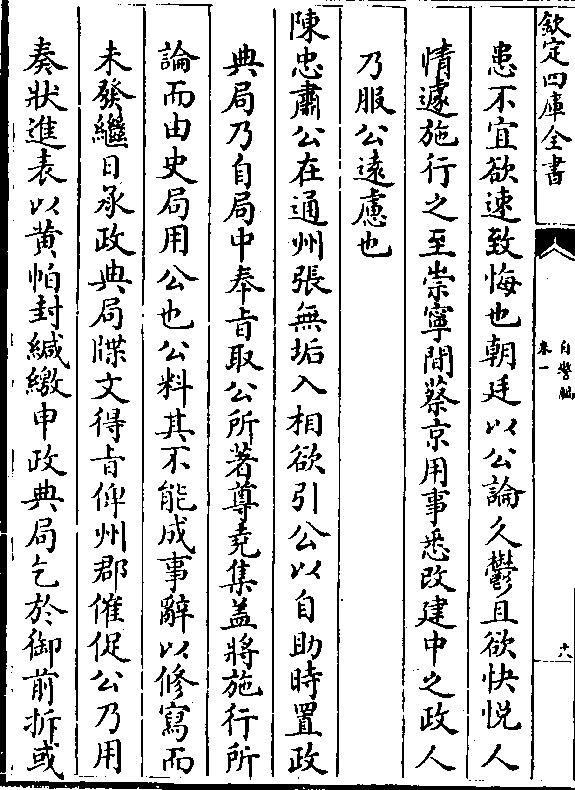 欽定四庫全書
自警編
卷一
十八
患不宜欲速致悔也朝廷以公論久鬱且欲快悦人
情遽施行之至崇寧間蔡京用事悉改建中之政人
乃服公遠慮也
陳忠肅公在通州張無垢入相欲引公以自助時置政
典局乃自局中奉㫖取公所著尊堯集盖將施行所
論而由史局用公也公料其不能成事辭以修寫而
未發繼日承政典局牒文得㫖俾州郡催促公乃用
奏狀進表以黄帕封緘繳申政典局乞於御前拆或